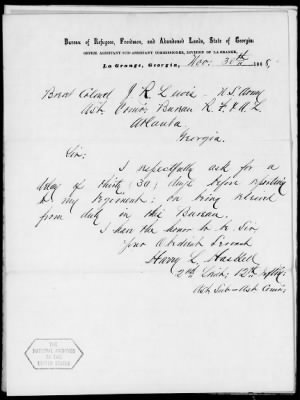 Bureau of Refugees, Freedmen, and Abandoned Lands, State of Georgia:
OFFICE ASSISTANT SUB-ASSISTANT COMMISSIONER, DIVISION OF LA GRANGE,
La Grange, Georgia, Nov: 30th 186
Brevet Colonel J. R. Lewis U.S. Army
Asst. Comr. Bureau R. F. & A. L.
Atlanta
Georgia.
Sir:
I respectfully ask for a
delay of thirty 30, days before reporting
to my regiment; on being relieved
from duty in this Bureau.
I have the honor to be Sir
Your Obedient Servant
Harry L. Haskell
2nd Lieut: 12th Inftry:
Ast. Sub-Ast. Comr.
THE
NATIONAL ARCHIVES
OF THE
UNITED STATES